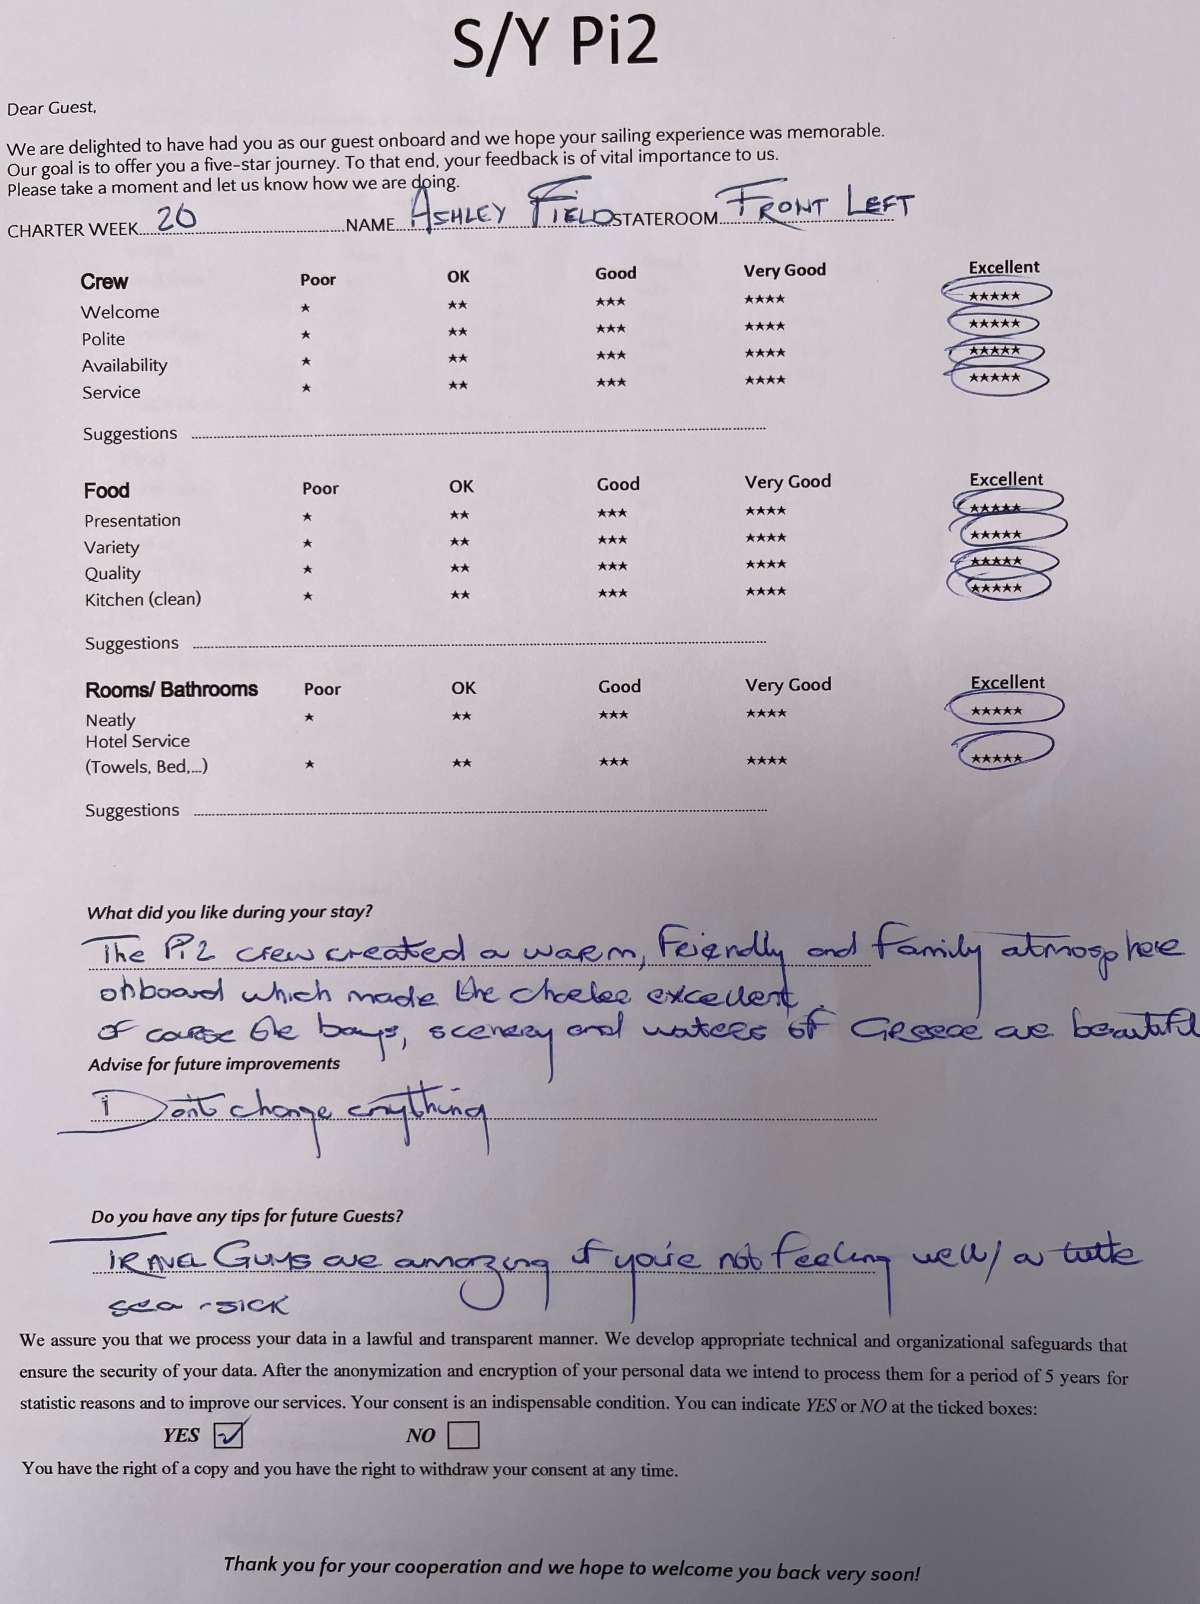 S/Y Pi2
Dear Guest,
We are delighted to have had you as our guest onboard and we hope your sailing experience was memorable.
Our goal is to offer you a five-star journey. To that end, your feedback is of vital importance to us.
Please take a moment and let us know how we are doing.
CHARTER WEEK 20 NAME ASHLEY FIELD STATEROOM FRONT LEFT
Crew Poor OK Good Very Good Excellent
Welcome ★ ★★ ★★★ ★★★★ ★★★★★
Polite ★ ★★ ★★★ ★★★★ ★★★★★
Availability ★ ★★ ★★★ ★★★★ ★★★★★
Service ★ ★★ ★★★ ★★★★ ★★★★★
Suggestions
Food Poor OK Good Very Good Excellent
Presentation ★ ★★ ★★★ ★★★★ ★★★★★
Variety ★ ★★ ★★★ ★★★★ ★★★★★
Quality ★ ★★ ★★★ ★★★★ ★★★★★
Kitchen (clean) ★ ★★ ★★★ ★★★★ ★★★★★
Suggestions
Rooms/ Bathrooms Poor OK Good Very Good Excellent
Neatly ★ ★★ ★★★ ★★★★ ★★★★★
Hotel Service
(Towels, Bed,...) ★ ★★ ★★★ ★★★★ ★★★★★
Suggestions
What did you like during your stay?
The Pi2 crew created a warm, friendly and family atmosphere
onboard which made the excellent.
Of course the bays, scenery and waters of Greece are beautiful
Advise for future improvements
Don't change anything
Do you have any tips for future Guests?
TRAVEL GUMS are amazing if you're not feeling well/ a little
sea-sick
We assure you that we process your data in a lawful and transparent manner. We develop appropriate technical and organizational safeguards that
ensure the security of your data. After the anonymization and encryption of your personal data we intend to process them for a period of 5 years for
statistic reasons and to improve our services. Your consent is an indispensable condition. You can indicate YES or NO at the ticked boxes:
YES NO
You have the right of a copy and you have the right to withdraw your consent at any time.
Thank you for your cooperation and we hope to welcome you back very soon!